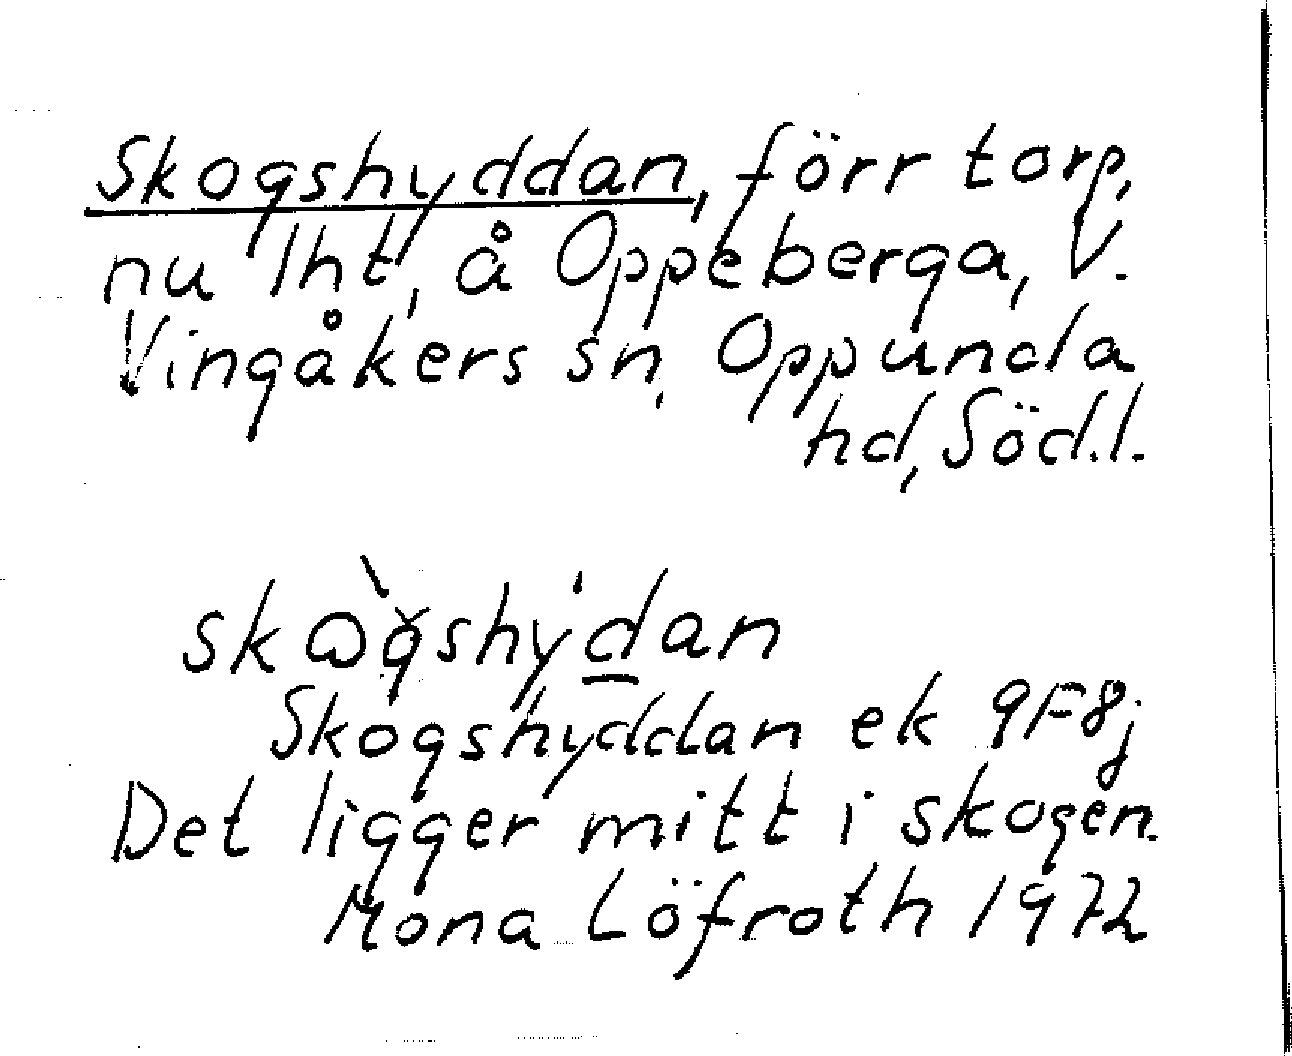 Skogshyddan, förr torp,
nu lht, å Oppeberga, V.
Vingåkers sn, Oppunda
hd, Söd.l.
skⱺ̀ǧshy̍d̲an
Skogshyddan ek 9F8j
Det ligger mitt i skogen.
Mona Löfroth 1972